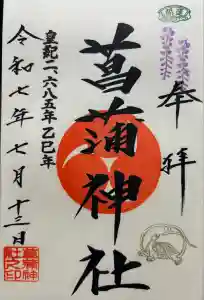 奉拝
菖蒲神社
皇紀二、六八五年 乙巳年
令和七年七月十三日